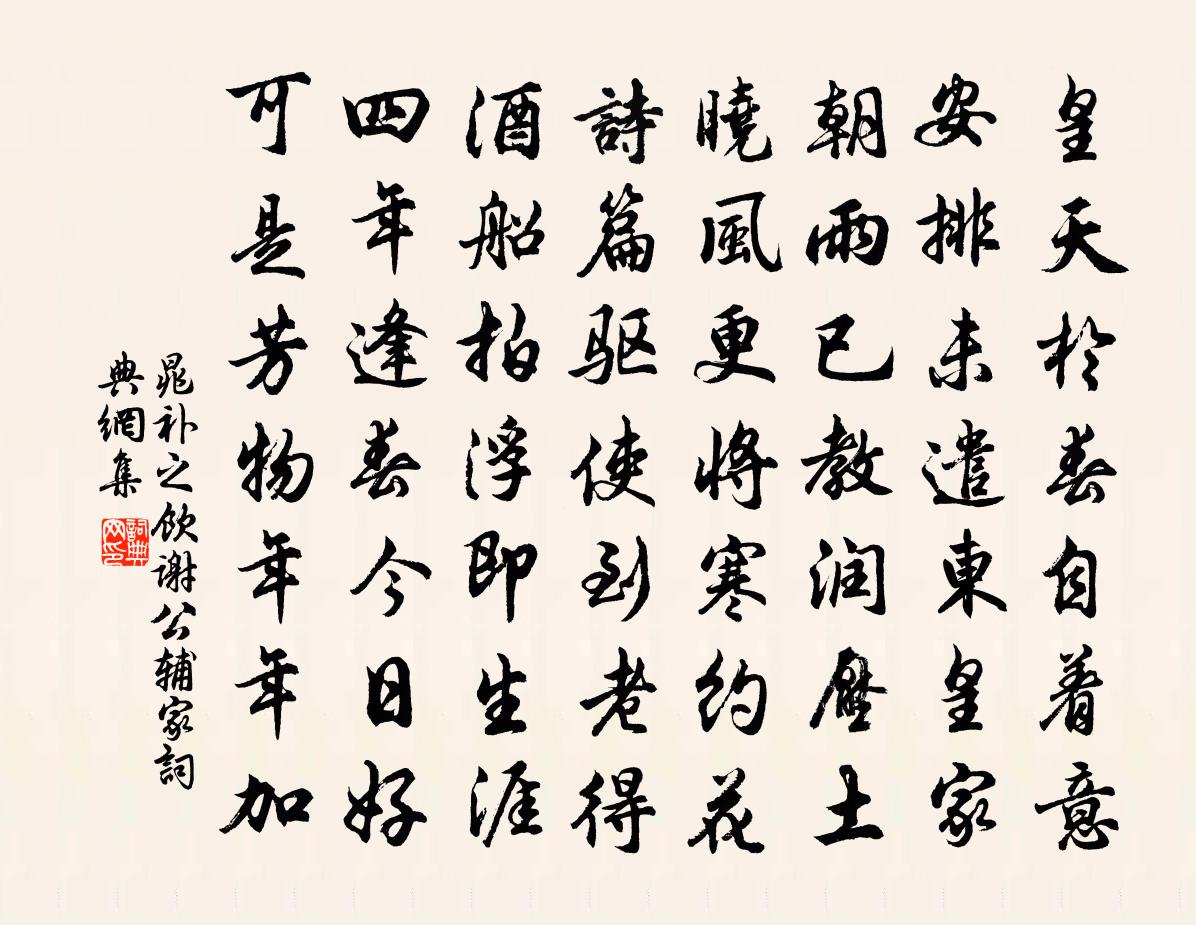 皇天於春自着意
安排未遣東皇家
朝雨已教润壓土
曉風更將寒約花
詩篇驱使到老得
酒船拍浮即生涯
四年逢春今日好
可是芳物年年加
晁补之饮谢公辅家詞
典網集
詞典
网印